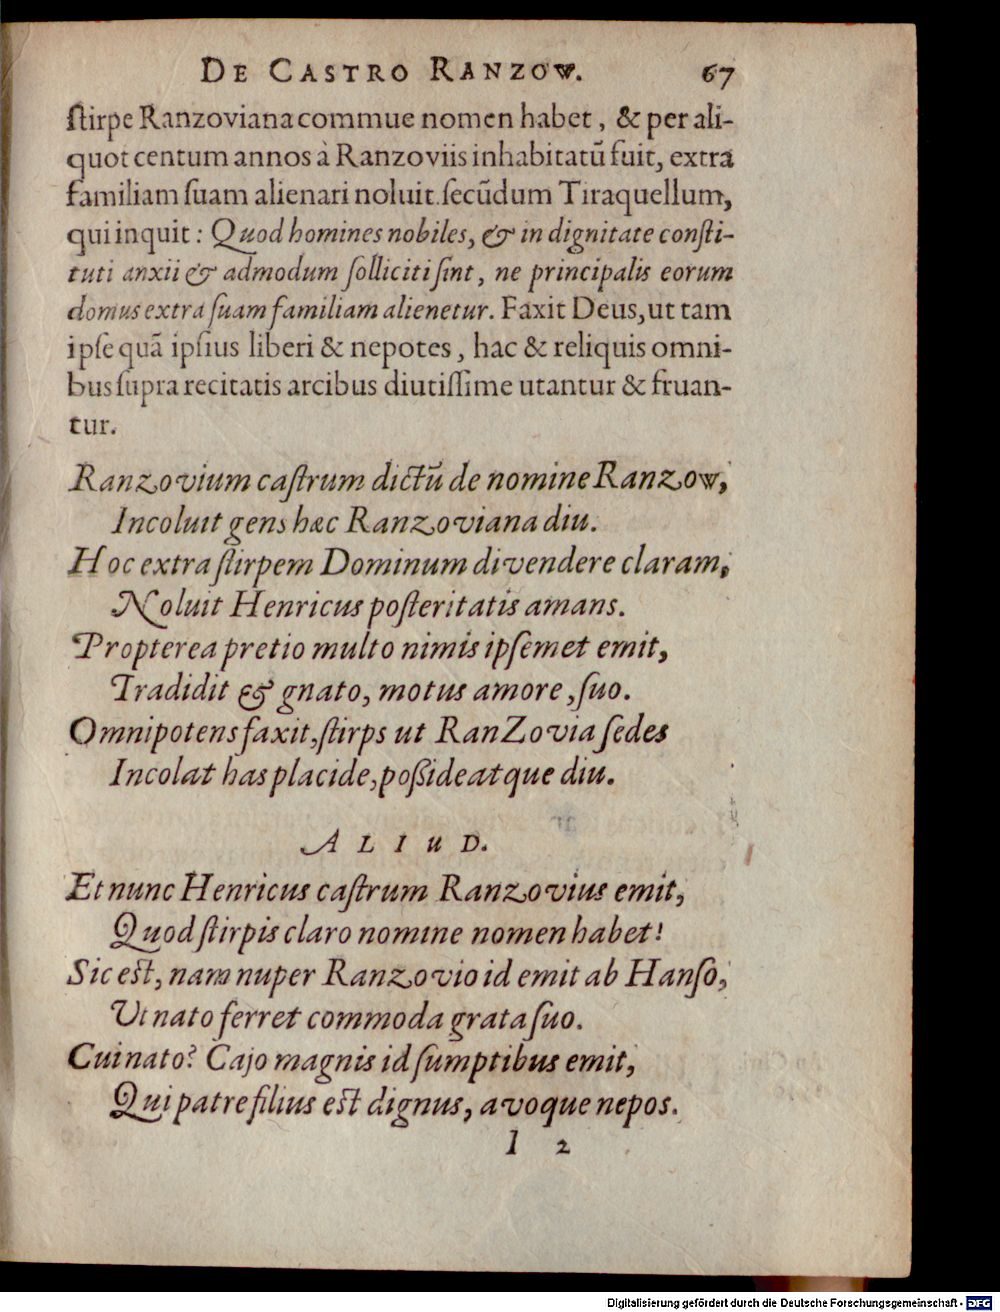 DE CASTRO RANZOW. 67
ſtirpe Ranzoviana commue nomen habet, & per ali-
quot centum annos à Ranzoviis inhabitatũ fuit, extra
familiam ſuam alienari noluit. ſecũdum Tiraquellum,
qui inquit: Quod homines nobiles, & in dignitate conſti-
tuti anxii & admodum ſolliciti ſint, ne principalis eorum
domus extra ſuam familiam alienetur. Faxit Deus, ut tam
ipſe quã ipſius liberi & nepotes, hac & reliquis omni-
bus ſupra recitatis arcibus diutiſſime utantur & fruan-
tur.
Ranzovium caſtrum dictũ de nomine Ranzow,
Incoluit gens hæc Ranzoviana diu.
Hoc extra ſtirpem Dominum divendere claram,
Noluit Henricus poſteritatis amans.
Propterea pretio multo nimis ipſemet emit,
Tradidit & gnato, motus amore, ſuo.
Omnipotens faxit, ſtirps ut RanZovia ſedes
Incolat has placide, poßideatque diu.
ALIUD.
Et nunc Henricus caſtrum Ranzovius emit,
Quod ſtirpis claro nomine nomen habet!
Sic eſt, nam nuper Ranzovio id emit ab Hanſo,
Ut nato ferret commoda grata ſuo.
Cui nato? Cajo magnis id ſumptibus emit,
Qui patre filius eſt dignus, avoque nepos.
l 2
Digitalisierung gefördert durch die Deutsche Forschungsgemeinschaft - DFG